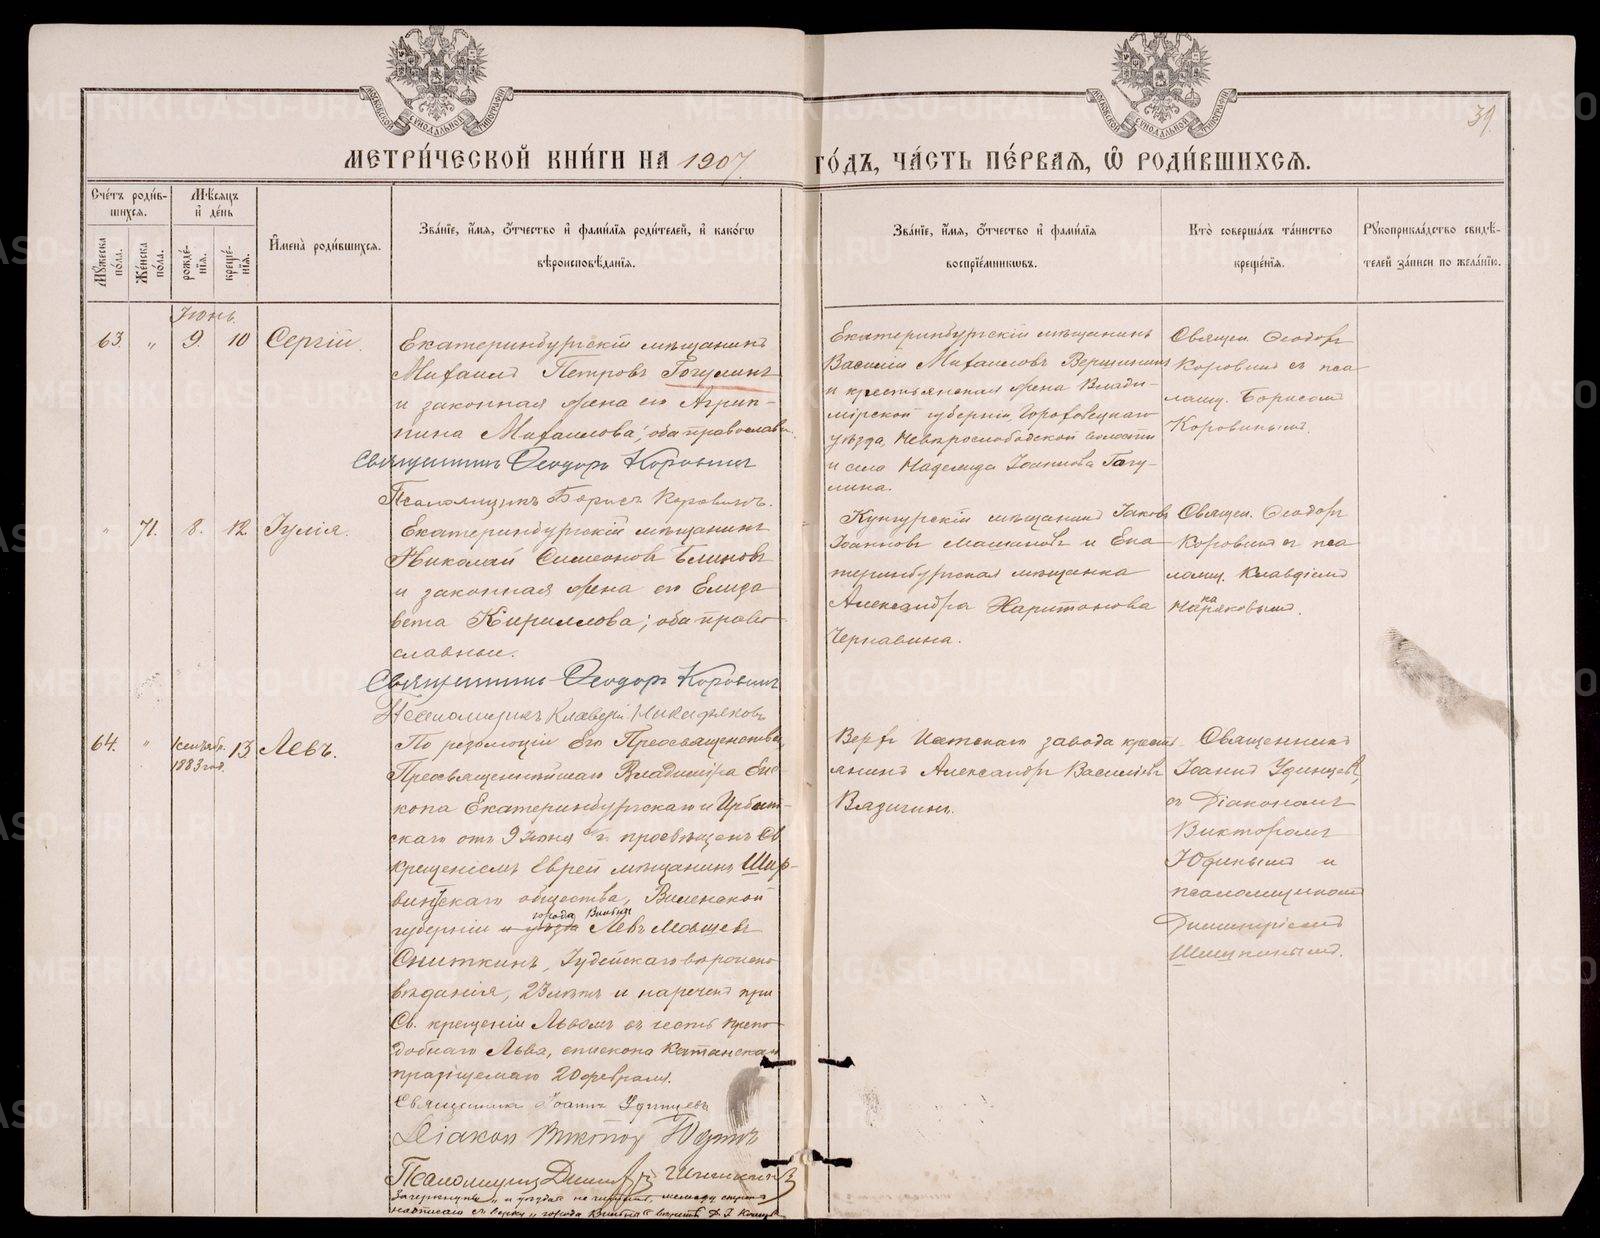 39.
МЕТРИ́ЧЕСКОЙ КНИ́ГИ НА 1907 ГО́ДЪ, ЧА́СТЬ ПЕ́РВАЯ, Ѡ РОДИ́ВШИХСЯ.
Сче́тъ роди́вшихся.
Мѣ́сяцъ и де́нь
Мꙋ́жеска по́ла.
Же́нска по́ла.
рожде́нїя.
креще́нїя.
И́мена роди́вшихся.
Зва́нїе, и́мя, ѻ́тчество и фами́лїя роди́телей, и како́гѡ
вѣроисповѣ́данїя.
Зва́нїе, и́мя, ѻ́тчество и фами́лїя
воспрїе́мникѡвъ.
Кто̀ соверша́лъ та́инство
креще́нїя.
Рꙋкоприкла́дство свидѣ́-
телей за́писи по жела́нїю.
Іюнь.
63. „ 9. 10 Сергій.
Екатеринбургскій мѣщанинъ
Михаилъ Петровъ Гогулинъ
и законная жена его Агрип-
пина Михаилова; оба православн.
Священникъ Ѳеодоръ Коровинъ
Псаломщикъ Борисъ Коровинъ.
Екатеринбургскій мѣщанинъ
Василій Михаиловъ Вершининъ
и крестьянская жена Влади-
мірской губерніи, Гороховецкаго
уѣзда,
и села Надежда Іоаннова Гогу-
лина.
Священ. Ѳеодоръ
Коровинъ съ пса-
ломщ. Борисомъ
Коровинымъ.
„ 71. 8. 12 Іулія.
Екатеринбургскій мѣщанинъ
Николай Симеоновъ Блиновъ
и законная жена его Елиза-
вета Кириллова; оба право-
славные.
Священникъ Ѳеодоръ Коровинъ
Псаломщикъ Клавдій
Кунгурскій мѣщанинъ Іаковъ
Іоанновъ Машановъ и Ека-
теринбургская мѣщанка
Александра Харитонова
Чернавина.
Священ. Ѳеодоръ
Коровинъ съ пса-
ломщ. Клавдіемъ
64. „ 1 сентябр. 1883 год. 13 Левъ.
По резолюціи Его Преосвященства,
Преосвященнѣйшаго Владиміра Епи-
скопа Екатеринбургскаго и Ирбит-
скаго отъ 9 Іюня с/г. просвѣщенъ Св.
крещеніемъ Еврей мѣщанинъ Шир-
винтскаго общества, Виленской
города Вильны
губерніи и уѣзда Левъ Мовшевъ
Сниткинъ, Іудейскаго вѣроиспо-
вѣданія, 23 лѣтъ и нареченъ при
Св. крещеніи Львомъ въ честь препо-
добнаго Льва, епископа Катанскаго
празднуемаго 20 февраля.
Священникъ Іоаннъ Удинцевъ
Діаконъ Викторъ Юдинъ
Псаломщикъ Димитрій Шишкинъ
Верхъ Исетскаго завода кресть-
янинъ Александръ Васильевъ
Вязигинъ.
Священникъ
Іоаннъ Удинцевъ,
съ Діакономъ
Викторомъ
Юдинымъ и
псаломщикомъ
Димитріемъ